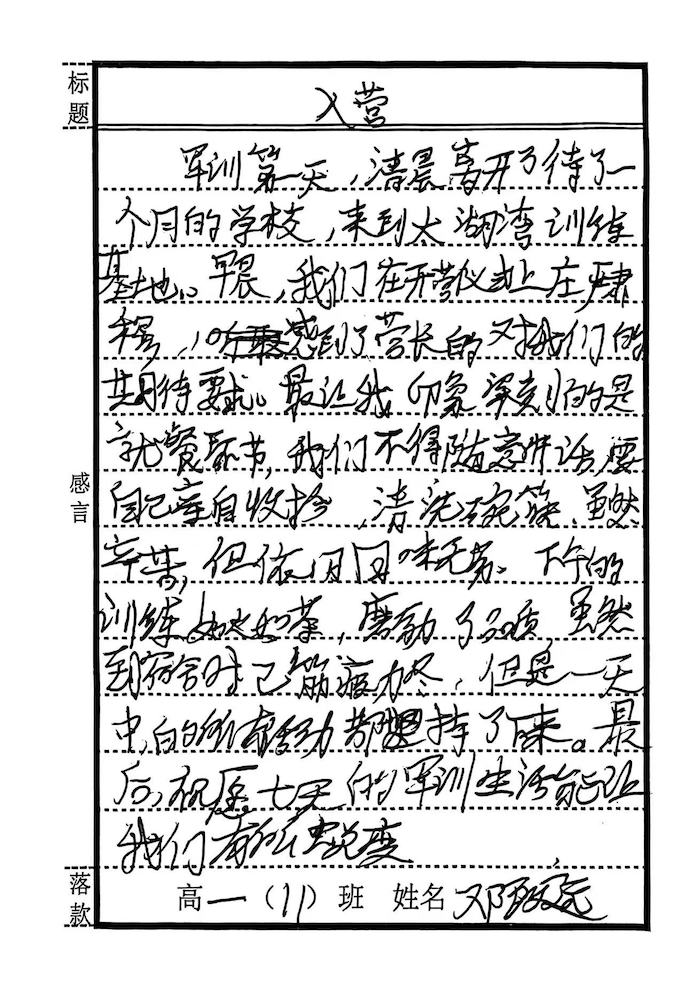 标题
入营
军训第一天，清晨离开了待了一
个月的学校，来到太湖湾训练
基地。早晨，我们在开营仪式上庄严肃
穆，感到了营长的对我们的
期待要求。最让我印象深刻的是
就餐环节，我们不得随意讲话，要
自己亲自收拾，清洗碗筷、虽然
辛苦，但依旧回味无穷、下午的
训练如火如荼，磨励了品质，虽然
到宿舍时已筋疲力尽，但是一天
中的所有活动都坚持了下来。最
后，祝愿七天的军训生活能让
我们有所蜕变
感言
落款
高一（11）班 姓名 邓